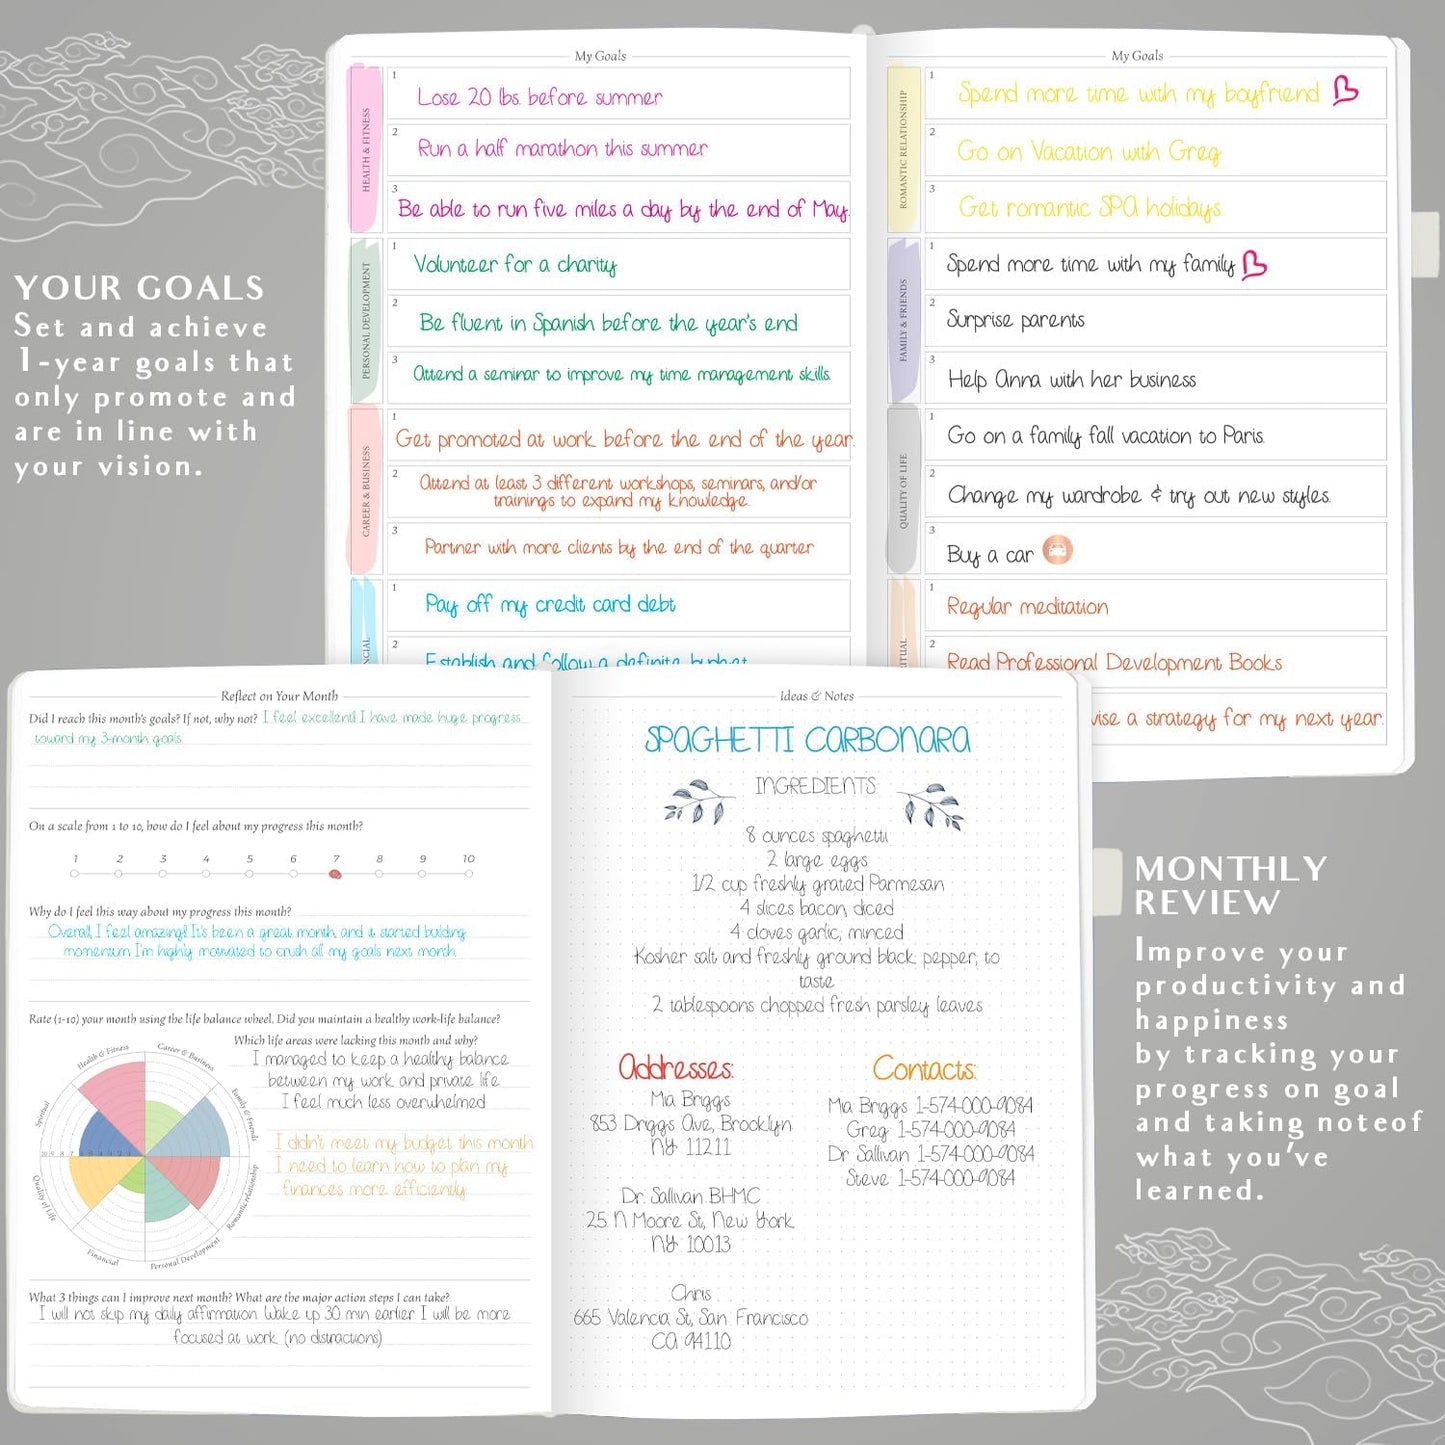 YOUR GOALS
Set and achieve
1-year goals that
only promote and
are in line with
your vision.
My Goals
HEALTH & FITNESS
1
Lose 20 lbs. before summer
2
Run a half marathon this summer
3
Be able to run five miles a day by the end of May.
PERSONAL DEVELOPMENT
1
Volunteer for a charity
2
Be fluent in Spanish before the year's end
3
Attend a seminar to improve my time management skills.
CAREER & BUSINESS
1
Get promoted at work before the end of the year.
2
Attend at least 3 different workshops, seminars, and/or
trainings to expand my knowledge.
3
Partner with more clients by the end of the quarter
NCIAL
1
Pay off my credit card debt
2
Establish and follow a definite budget
My Goals
ROMANTIC RELATIONSHIP
1
Spend more time with my boyfriend
2
Go on Vacation with Greg
3
Get romantic SPA holidays
FAMILY & FRIENDS
1
Spend more time with my family
2
Surprise parents
3
Help Anna with her business
QUALITY OF LIFE
1
Go on a family fall vacation to Paris.
2
Change my wardrobe & try out new styles.
3
Buy a car
RITUAL
1
Regular meditation
2
Read Professional Development Books
vise a strategy for my next year.
Reflect on Your Month
Did I reach this month's goals? If not, why not? I feel excellent! I have made huge progress
toward my 3-month goals.
On a scale from 1 to 10, how do I feel about my progress this month?
1 2 3 4 5 6 7 8 9 10
Why do I feel this way about my progress this month?
Overall, I feel amazing! It's been a great month, and it started building
momentum. I'm highly motivated to crush all my goals next month.
Rate (1-10) your month using the life balance wheel. Did you maintain a healthy work-life balance?
Health & Fitness
Career & Business
Family & Friends
Romantic relationship
Personal Development
Financial
Quality of Life
Spiritual
Which life areas were lacking this month and why?
I managed to keep a healthy balance
between my work and private life
I feel much less overwhelmed
I didn't meet my budget this month
I need to learn how to plan my
finances more efficiently.
What 3 things can I improve next month? What are the major action steps I can take?
I will not skip my daily affirmation. Wake up 30 min earlier. I will be more
focused at work (no distractions)
Ideas & Notes
SPAGHETTI CARBONARA
INGREDIENTS
8 ounces spaghetti
2 large eggs
1/2 cup freshly grated Parmesan
4 slices bacon, diced
4 cloves garlic, minced
Kosher salt and freshly ground black pepper, to
taste
2 tablespoons chopped fresh parsley leaves
Addresses:
Mia Briggs
853 Driggs Ave, Brooklyn
NY 11211
Dr. Sallivan BHMC
25 N Moore St, New York
NY 10013
Chris
665 Valencia St, San Francisco
CA 94110
Contacts:
Mia Briggs 1-574-000-9084
Greg 1-574-000-9084
Dr Sallivan 1-574-000-9084
Steve 1-574-000-9084
MONTHLY
REVIEW
Improve your
productivity and
happiness
by tracking your
progress on goal
and taking noteof
what you've
learned.